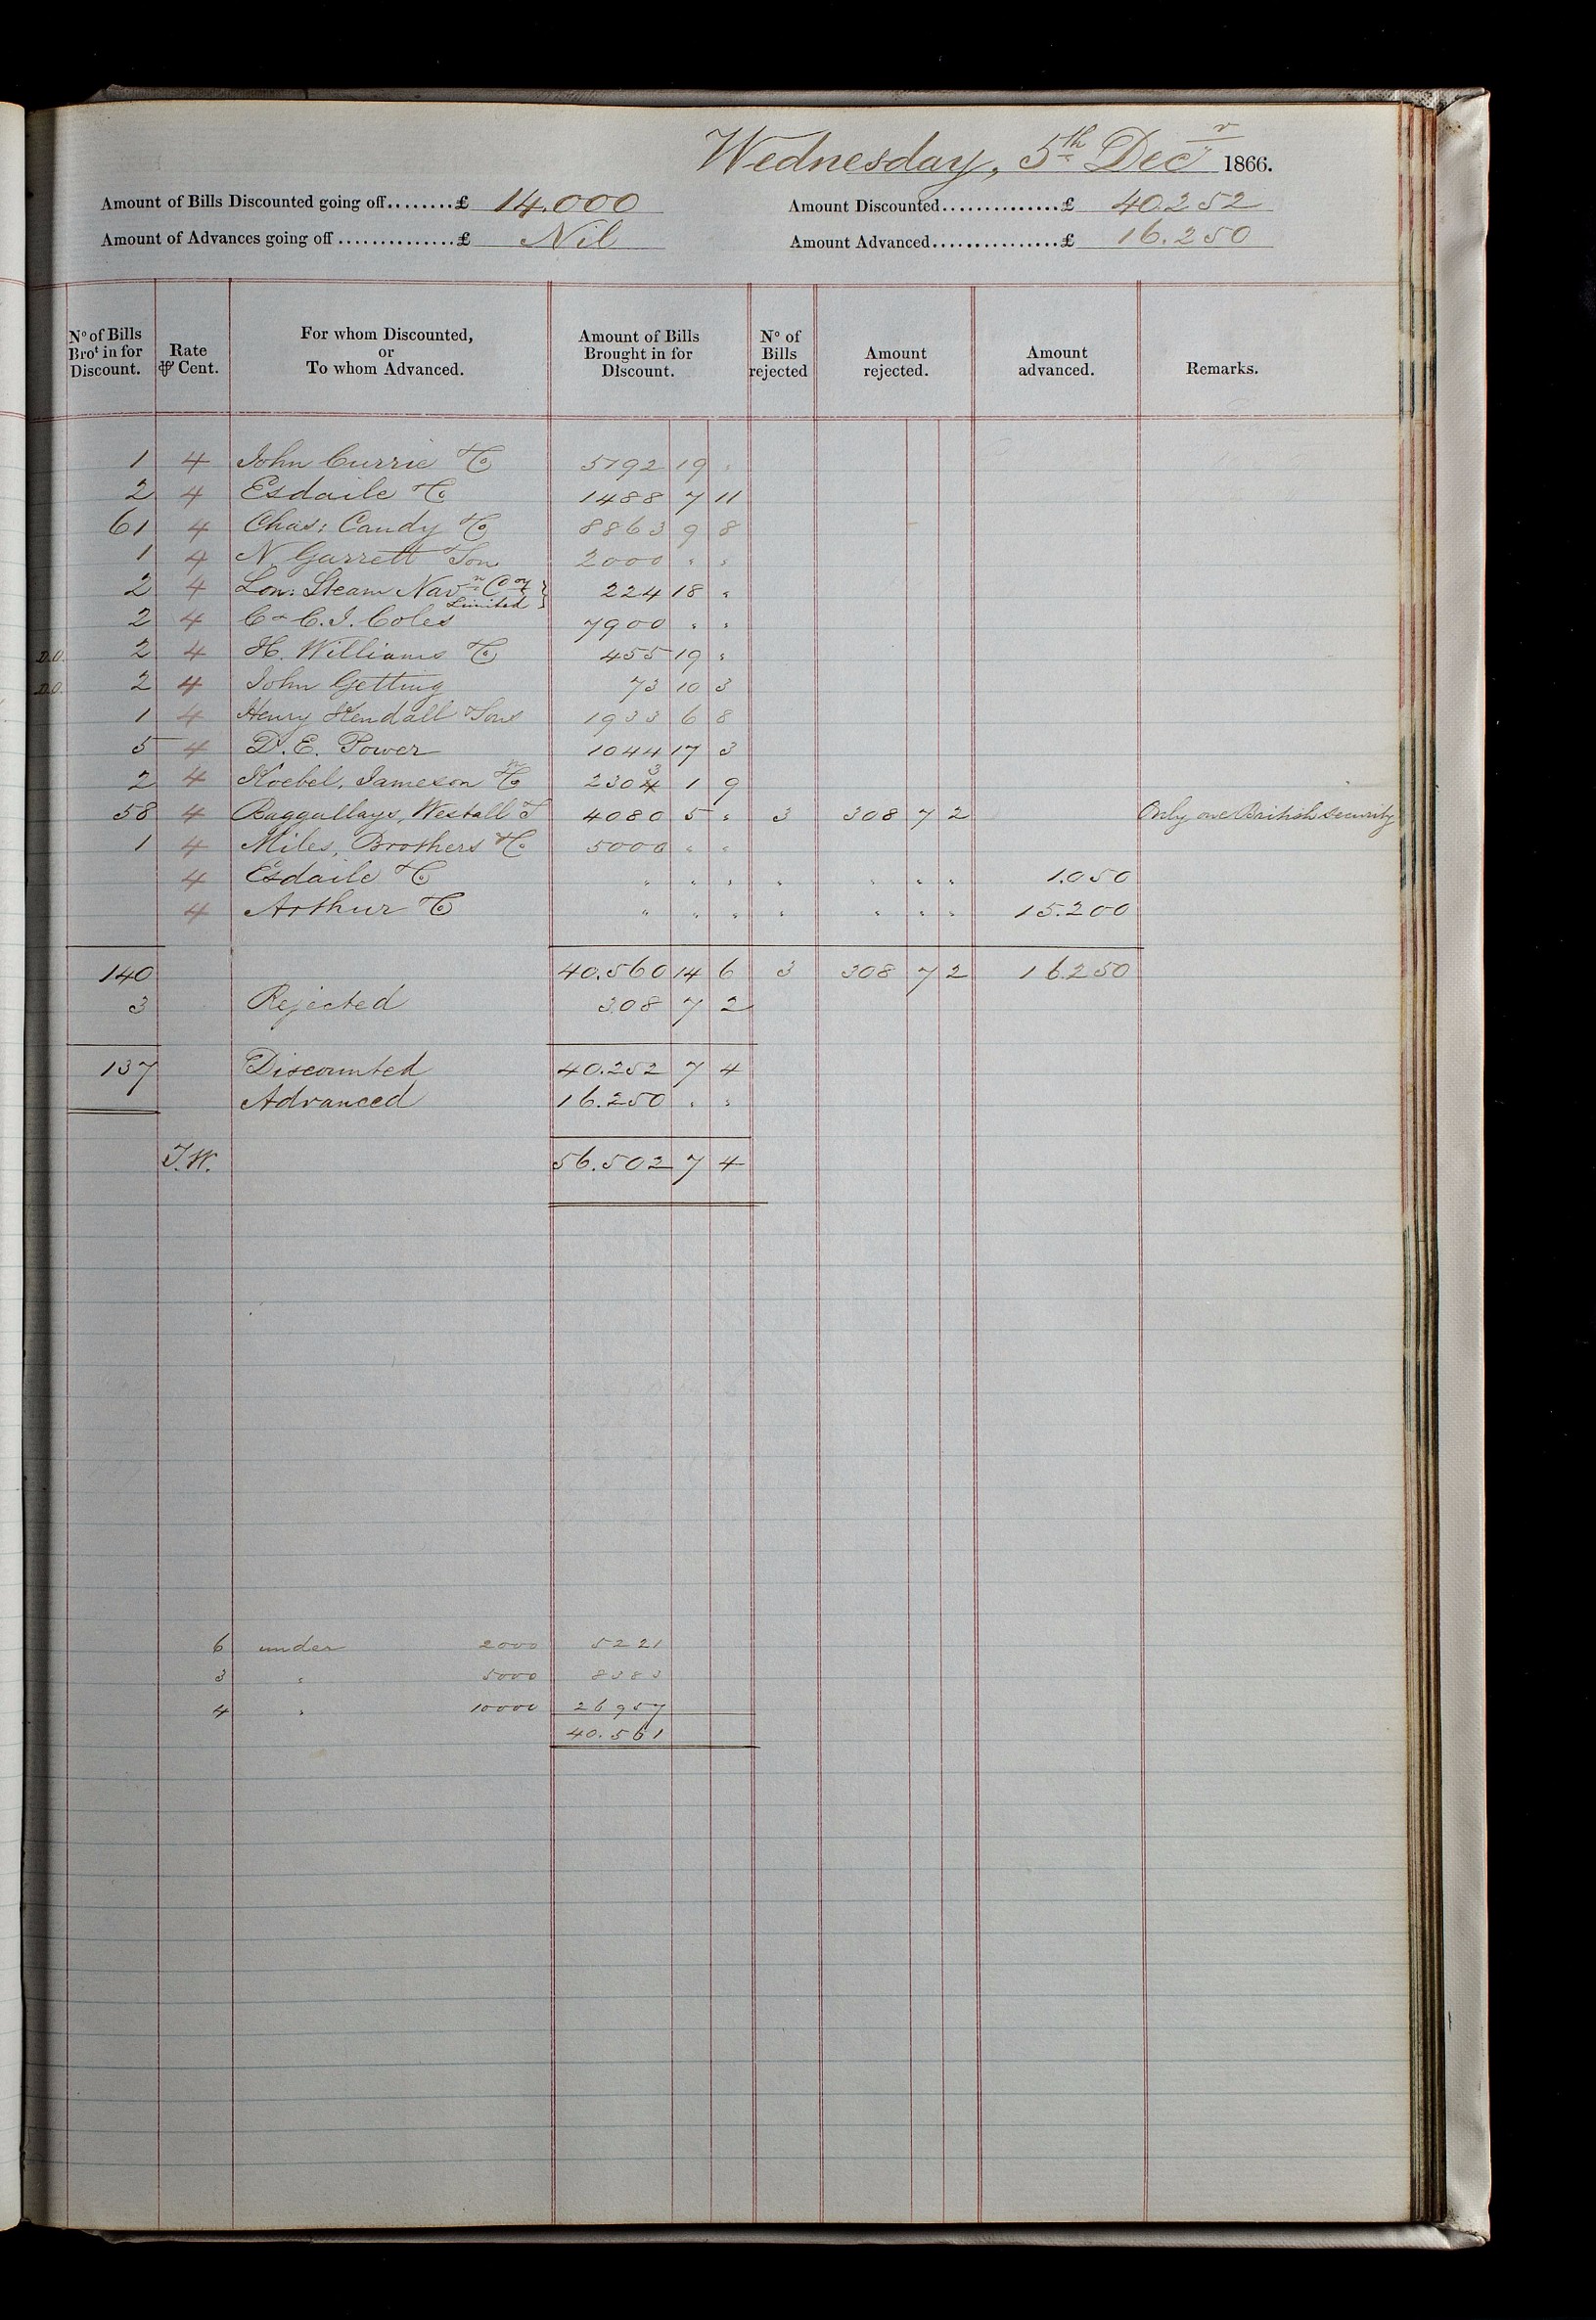 Wednesday, 5th Decr 1866.
Amount of Bills Discounted going off........£ 14.000
Amount Discounted..............£ 40.252
Amount of Advances going off..............£ Nil
Amount Advanced................£ 16.250
No of Bills Brot in for Discount. Rate ⅌ Cent. For whom Discounted, or To whom Advanced. Amount of Bills Brought in for Discount. No of Bills rejected Amount rejected. Amount advanced. Remarks.
1 4 John Currie & Co 5192 19 "
2 4 Esdaile & Co 1488 7 11
61 4 Chas: Candy & Co 8863 9 8
1 4 N Garrett & Son 2000 " "
2 4 Lon: Steam Navn Cooy Limited } 224 18 "
2 4 C & C. J. Coles 7900 " "
D.O. 2 4 H. Williams & Co 455 19 "
D.O. 2 4 John Getting 73 10 3
1 4 Henry Kendall & Sons 1933 6 8
5 4 D. E. Power 1044 17 3
2 4 Koebel, Jameson & Co 2303 1 9
58 4 Baggallays, Westall & 4080 5 " 3 308 7 2 Only one British security
1 4 Miles, Brothers & Co 5000 " "
4 Esdaile & Co " " " " " " " 1.050
4 Arthur & Co " " " " " " " 15.200
140 40.560 14 6 3 308 7 2 16.250
3 Rejected 308 7 2
137 Discounted 40.252 7 4
Advanced 16.250 " "
J.W. 56.502 7 4
6 under 2000 5221
3 " 5000 8383
4 " 10000 26957
40.561